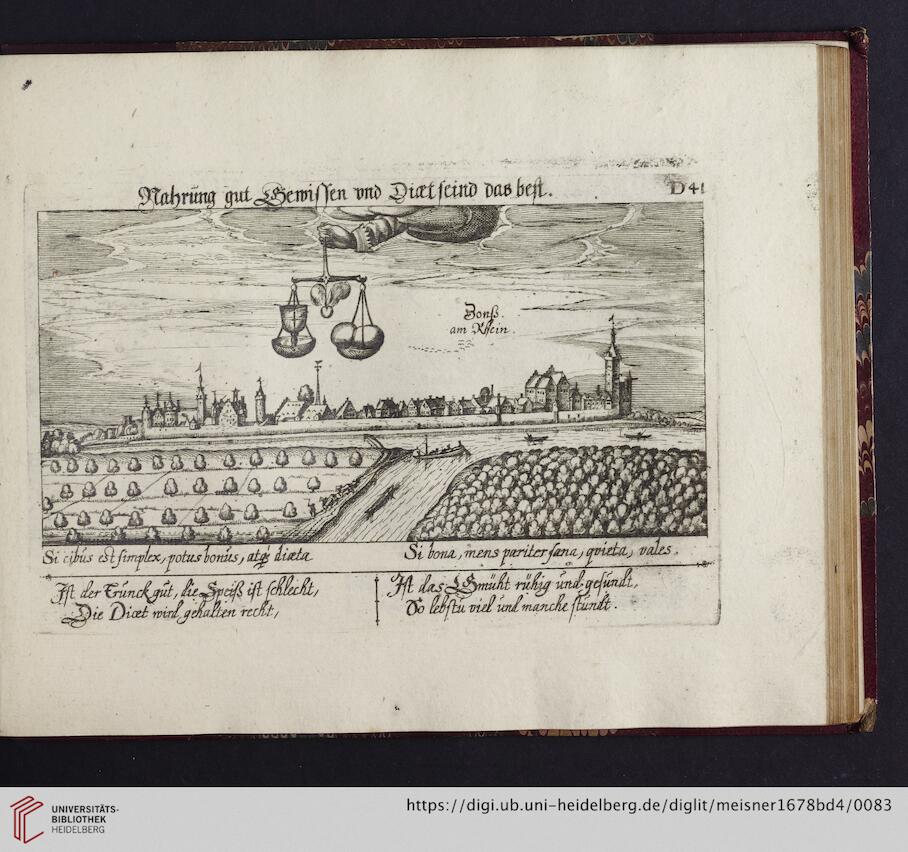 Nahrüng gut Gewissen vnd Diæt seind das best.
D 41
Zonß.
am Rhein.
Si cibús est simplex, potus bonús, atq3 diæta
Si bona, mens pariter sana, qvieta, vales.
Ist der Trunck gút, die Speiß ist schlecht,
Die Diæt wird gehalten recht,
Ist das Gmüht rühig ünd gesundt,
So lebstu viel ünd manche stundt.
UNIVERSITÄTS-
BIBLIOTHEK
HEIDELBERG
https://digi.ub.uni-heidelberg.de/diglit/meisner1678bd4/0083